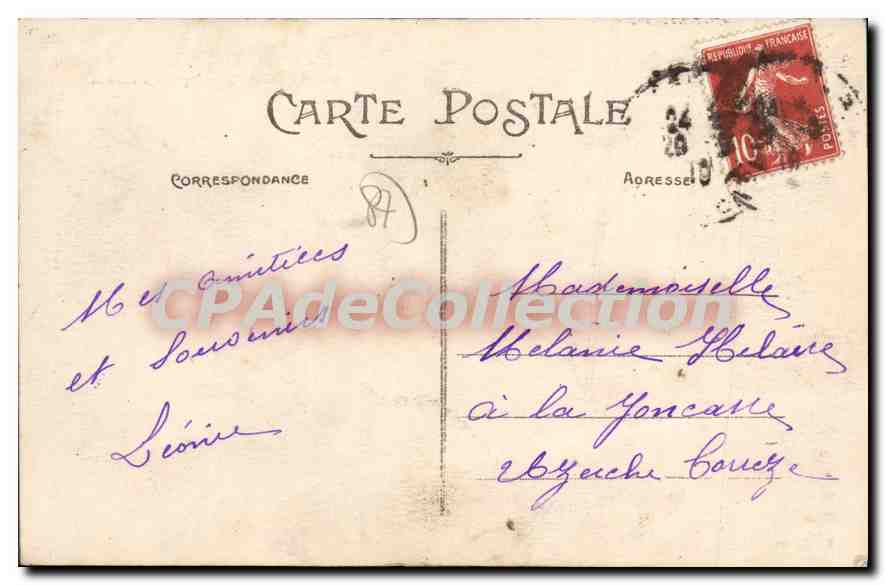 CARTE POSTALE
CORRESPONDANCE
ADRESSE
87
REPUBLIQUE FRANÇAISE
POSTES
10
Mes amitiées
et souvenirs
Léonie
Mademoiselle
Mélanie Hélaire
à la Joncasse
Uzerche Corrèze
CPAdeCollection